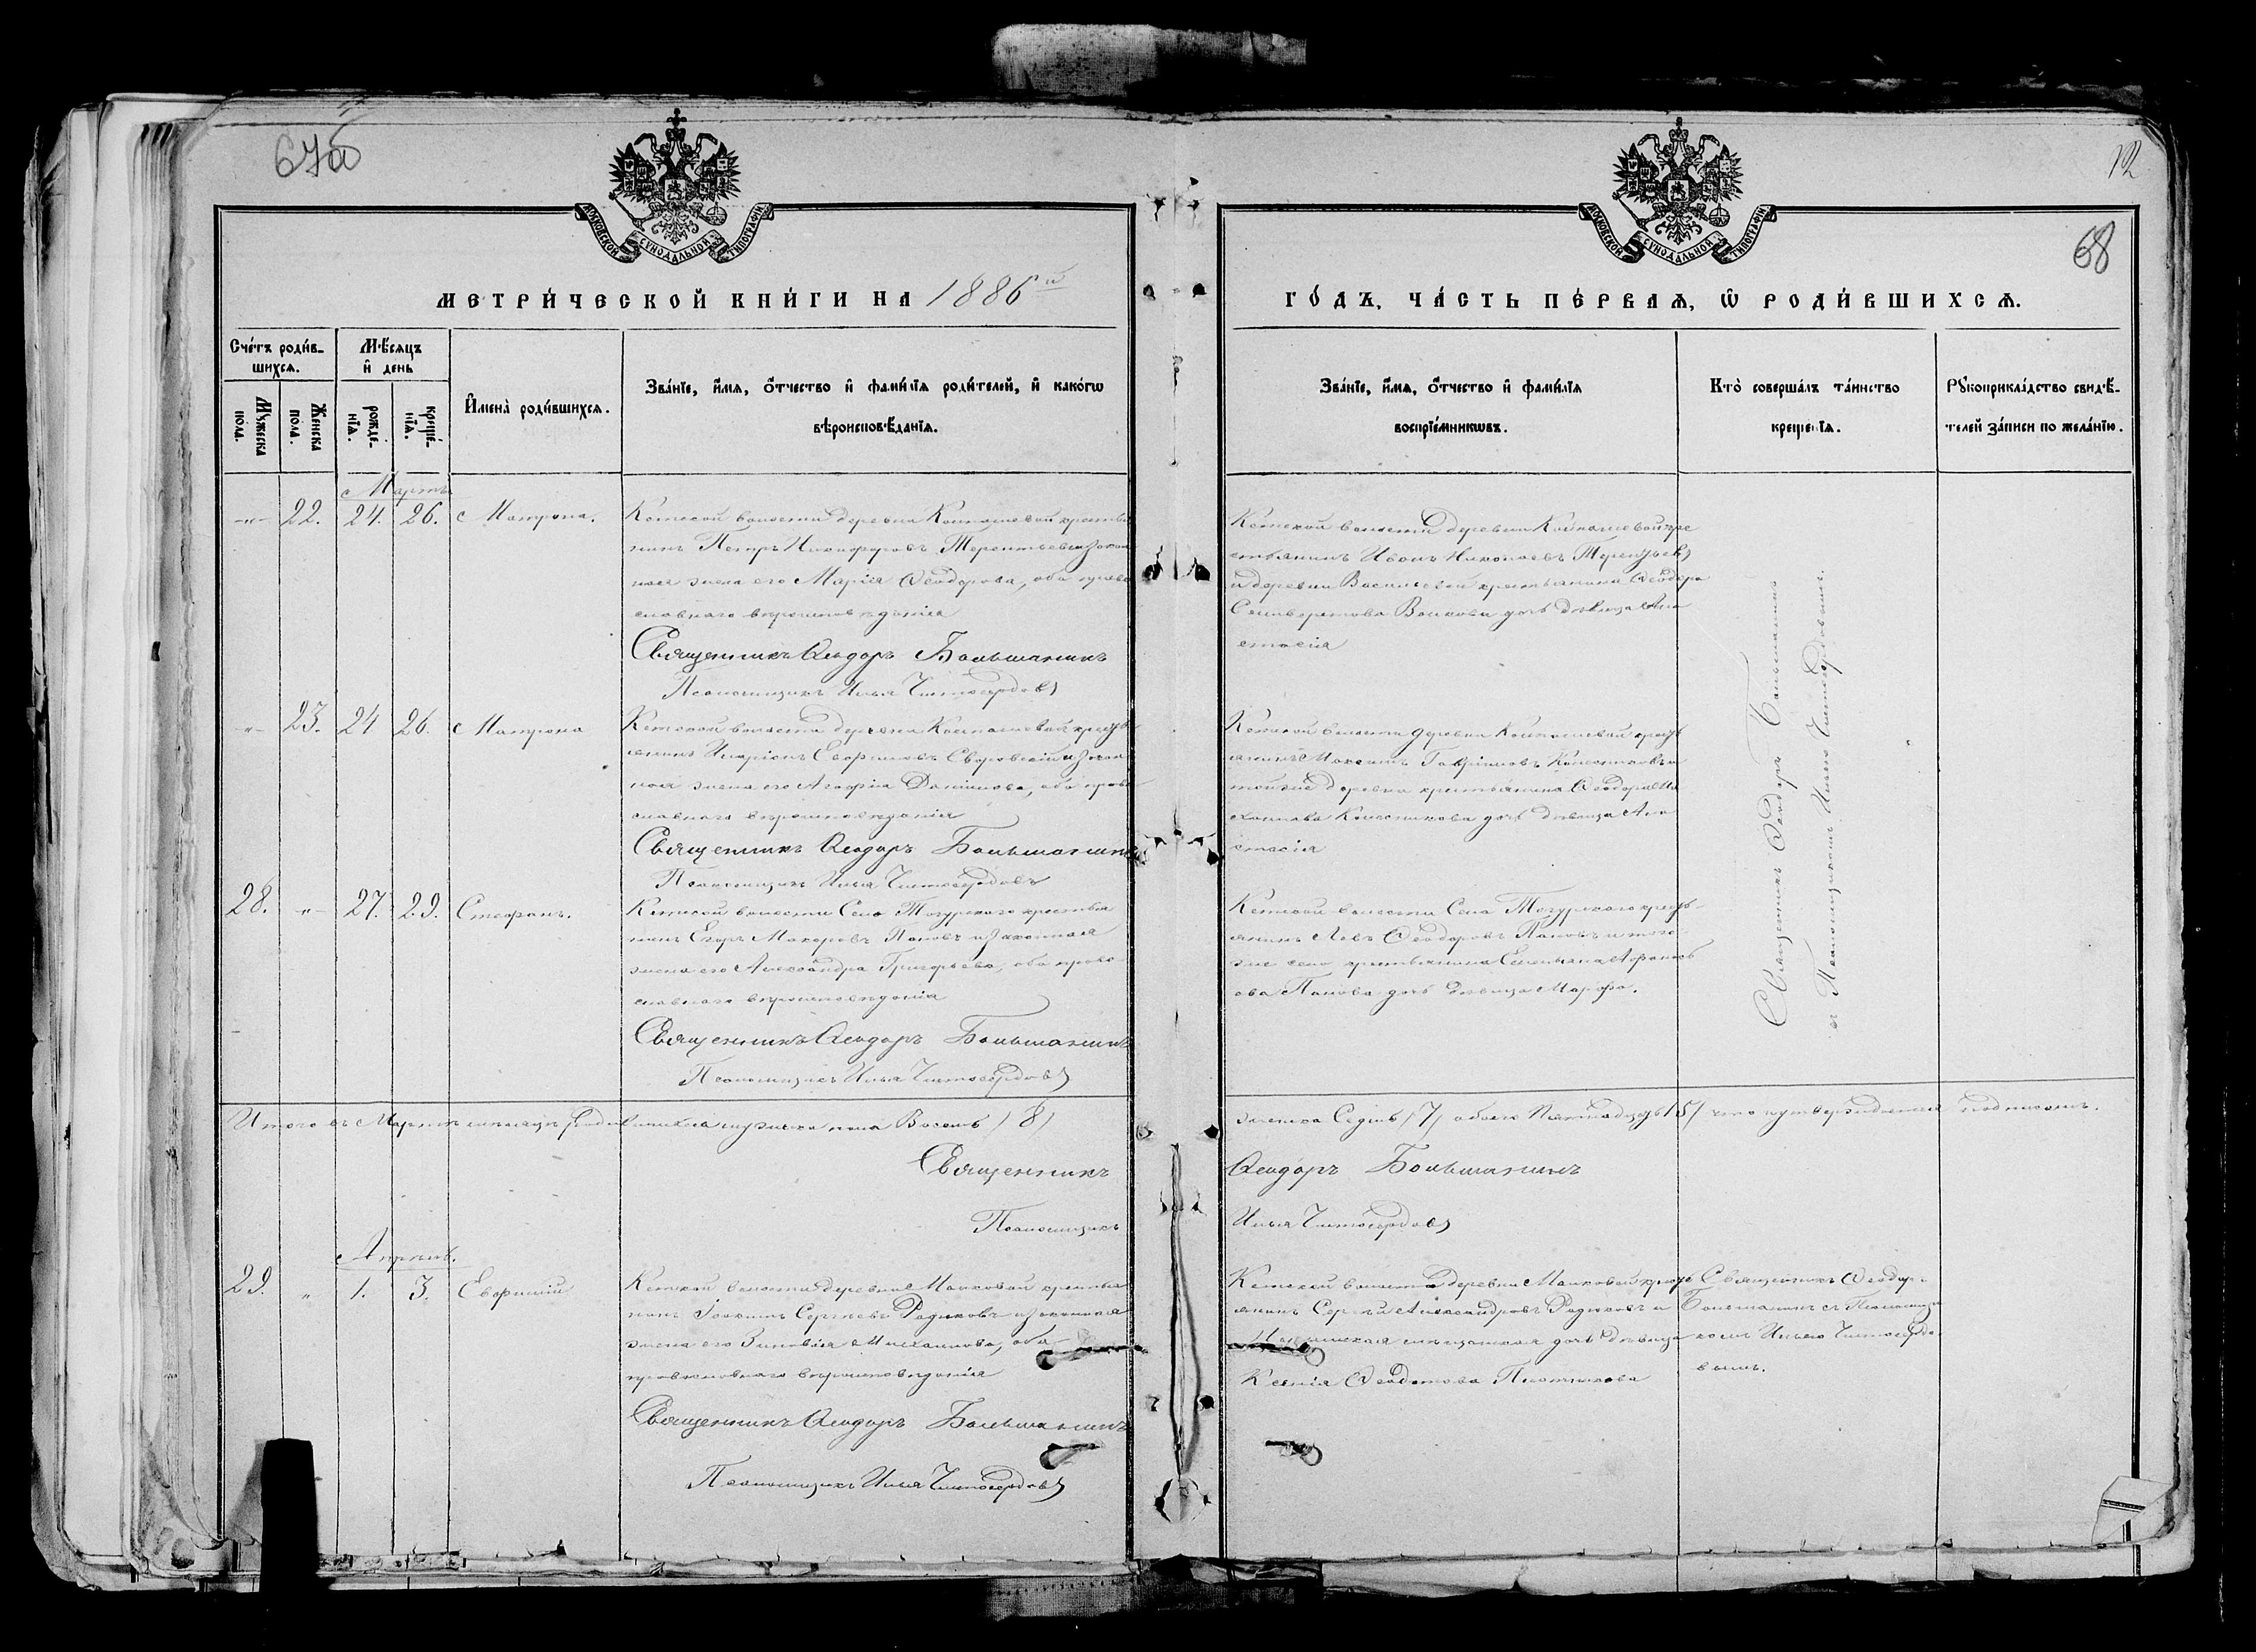 67об
12
68
МОСКОВСКОЙ СУНОДАЛЬНОЙ ТИПОГРАФІИ
МОСКОВСКОЙ СУНОДАЛЬНОЙ ТИПОГРАФІИ
МЕТРИ́ЧЕСКОЙ КНИ́ГИ НА 1886й
ГО́ДЪ, ЧА́СТЬ ПЕ́РВАЯ, Ѡ РОДИ́ВШИХСЯ.
Сче́тъ роди́в-
шихся.
Мѣ́сяцъ
и҆ день
Мꙋ́жеска
пола.
Же́нска
пола.
рожде́-
нїѧ.
креще́-
нїѧ.
И҆мена̀ роди́вшихся.
Зва́нїе, и҆́мя, ѻ҆́тчество и҆ фами́лїя роди́телей, и҆ како́гѡ
вѣроисповѣ́данїя.
Зва́нїе, и҆́мя, ѻ҆́тчество и҆ фами́лїя
воспрїе́мникѡвъ.
Кто̀ соверша́лъ та́инство
креще́нїя.
Рꙋкоприкла́дство свидѣ́-
телей за́писи по жела́нїю.
Мартъ
-"- 22. 24. 26. Матрона.
Кетской волости деревни Колпашевой крестья
нинъ Петръ Никифоровъ Терентьевъ и закон
ная жена его Марія Ѳеодорова, оба право
славнаго вѣроисповѣданія
Священникъ Ѳеодоръ Большанинъ
Псаломщикъ Илья Чистосердовъ
Кетской волости деревни Колпашевой кре
стьянинъ Иванъ Николаевъ Терентьевъ
и деревни Васильевой крестьянина Ѳеодора
Волкова дочь дѣвица Ана
стасія
-"- 23. 24 26. Матрона
Кетской волости деревни Колпашевой крестья
нинъ Иларіонъ и закон
ная жена его Агафія Даніилова, оба право
славнаго вѣроисповѣданія
Священникъ Ѳеодоръ Большанинъ
Псаломщикъ Илья Чистосердовъ
Кетской волости деревни Колпашевой крестья
нинъ Максимъ Гавріиловъ и
той же деревни крестьянина Ѳеодора Ми
хаилова Колесникова дочь дѣвица Ана
стасія
28. -"- 27. 29. Стефанъ.
Кетской волости Села Тогурскаго крестья
нинъ Егоръ Макаровъ Пановъ и законная
жена его Александра Григорьева, оба право
славнаго вѣроисповѣданія
Священникъ Ѳеодоръ Большанинъ
Псаломщикъ Илья Чистосердовъ
Кетской волости Села Тогурскаго кресть
янинъ Левъ Ѳеодоровъ Пановъ и того-
же села крестьянина
Панова дочь дѣвица Марфа.
Священникъ Ѳеодоръ Большанинъ
съ Псаломщикомъ Ильею Чистосердовымъ.
Итого въ Мартѣ мѣсяцѣ родившихся мужеска пола Восемь /8/
женска Седмь /7/ обоего Пятнадцать /15/ что и утверждаемъ подписомъ.
Священникъ
Ѳеодоръ Большанинъ
Псаломщикъ
Илья Чистосердовъ
Апрѣль.
29. " 1. 3. Евфимій
Кетской волости деревни Маковой крестья
нинъ Іоакимъ Сергѣевъ Родюковъ и законная
жена его Зиновія Михаилова, оба
православнаго вѣроисповѣданія
Священникъ Ѳеодоръ Большанинъ
Псаломщикъ Илья Чистосердовъ
Кетской волости деревни Маковой кресть
янинъ Сергѣй Александровъ Родюковъ и
мѣщанская дочь дѣвица
Ксенія Ѳеодотова Плотникова
Священникъ Ѳеодоръ
Большанинъ съ Псаломщи
комъ Ильею Чистосердо
вымъ.